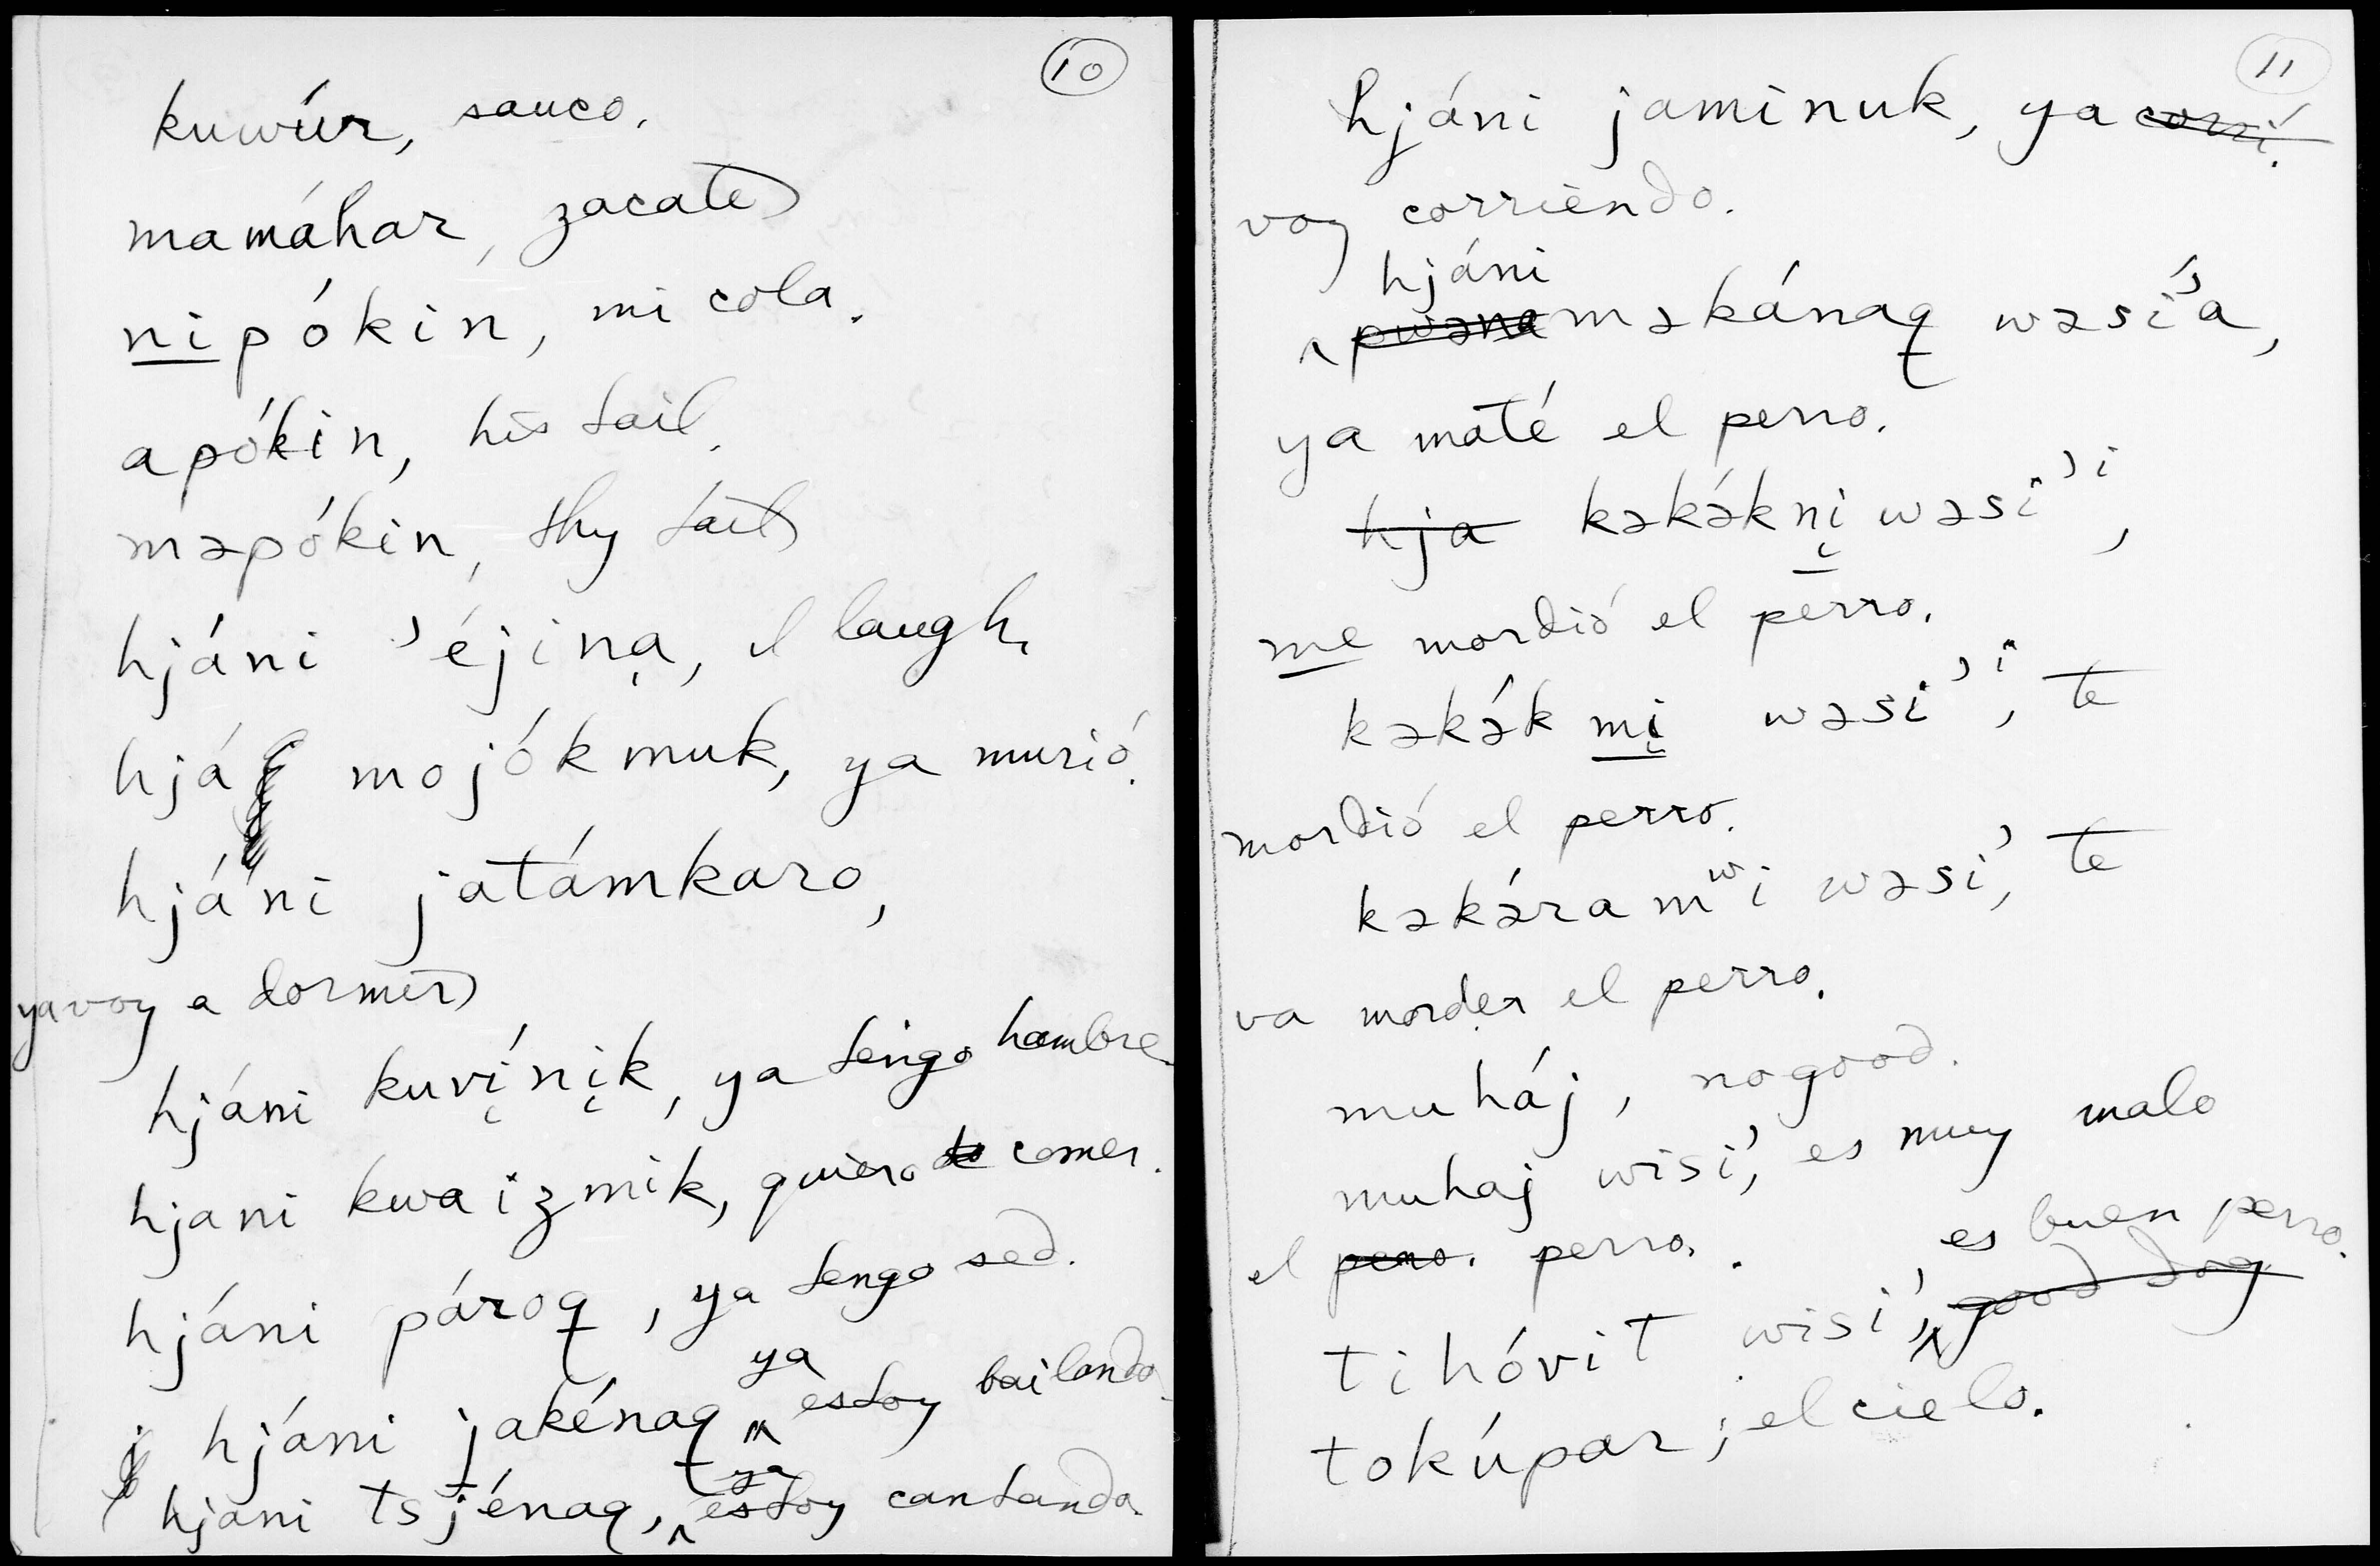 10
kuwúr, sauco.
mamáhar, zacate
nipókin, mi cola.
apókin, his tail.
məpókin, thy tail
hjáni ʼéjinạ, I laugh.
hjá mojókmuk, ya murió.
hjáni jatámkaro,
ya voy a dormir
hjáni kuvị́nịk, ya tengo hambre.
hjani kwaizmik, quiero comer.
hjáni pároq, ya tengo sed.
hjáni jakénaq, ya estoy bailando.
hjani tsjénaq, ya estoy cantando.
11
hjáni jaminuk, ya corrí.
voy corriendo.
hjáni
pwənə məkánaq wəsíʼa,
ya maté el perro.
hja kəkə́knị wəsiʼi,
me mordió el perro.
kəkə́k mị wəsiʼi, te
mordió el perro.
kəkə́ra mʷi wəsiʼ, te
va morder el perro.
muháj, no good.
muhaj wisiʼ, es muy malo
el perro. perro.
es buen perro.
tihóvit wisiʼ, good dog
tokúpar, el cielo.